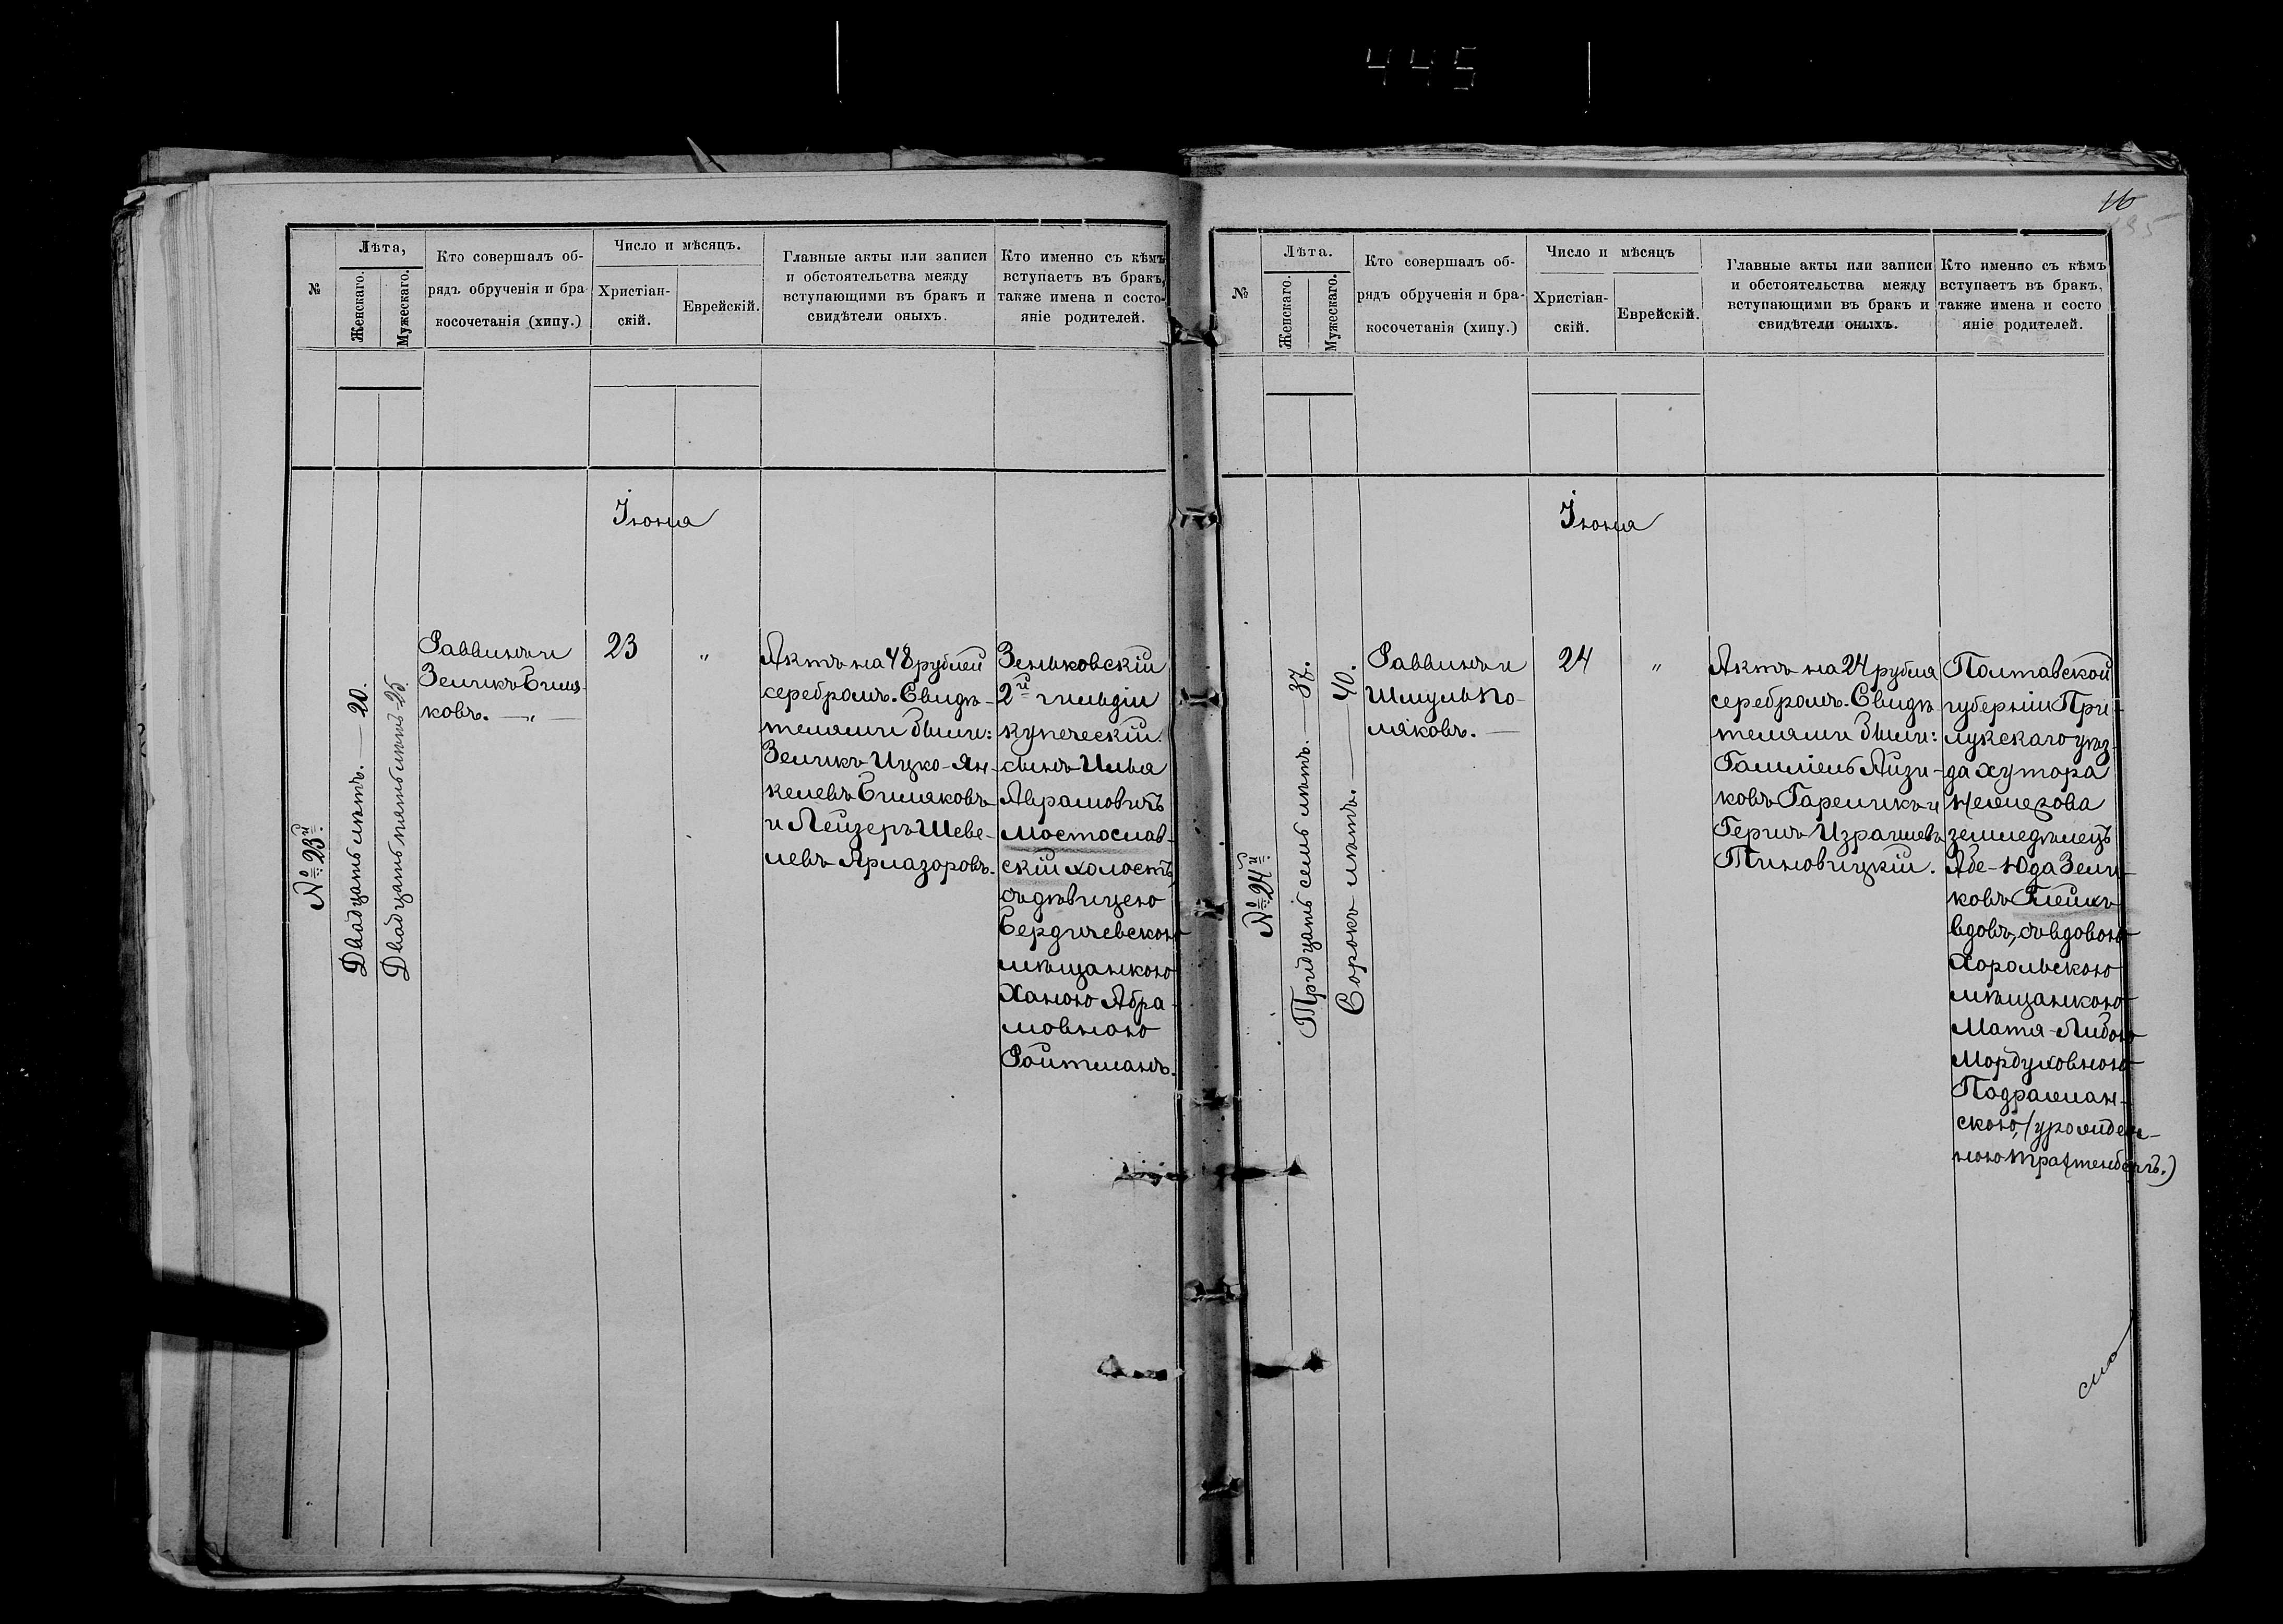 445
№
Лѣта,
Женскаго.
Мужескаго.
Кто совершалъ об-
рядъ обрученія и бра-
косочетанія (хипу.)
Число и мѣсяцъ.
Христіан-
скій.
Еврейскій.
Главные акты или записи
и обстоятельства между
вступающими въ бракъ и
свидѣтели оныхъ.
Кто именно съ кѣмъ
вступаетъ въ бракъ,
также имена и состо-
яніе родителей.
Іюня
№ 23й.
Двадцать лѣтъ. — 20.
Двадцать пять лѣтъ 25.
Раввинъ и
Зеликъ Биля-
ковъ. —„—
23
„
Актъ на 48 рублей
серебромъ. Свидѣ-
телями были:
Зеликъ Ицко-Ян-
келевъ Биляковъ
и Лейзеръ Шеве-
левъ Ярмазоровъ.
Зеньковскій
2й гильдіи
купеческій
сынъ Илья
Аврамовичъ
Мостослав-
скій холостъ,
съ дѣвицею
Бердичевскою
мѣщанкою
Ханою Абра-
мовною
Ройтманъ.
16
195
№
Лѣта.
Женскаго.
Мужескаго.
Кто совершалъ об-
рядъ обрученія и бра-
косочетанія (хипу.)
Число и мѣсяцъ
Христіан-
скій.
Еврейскій.
Главные акты или записи
и обстоятельства между
вступающими въ бракъ и
свидѣтели оныхъ.
Кто именно съ кѣмъ
вступаетъ въ бракъ,
также имена и состо
яніе родителей.
Іюня
№ 24й.
Тридцать семь лѣтъ. — 37.
Сорокъ лѣтъ. — 40.
Раввинъ и
Шмуль По-
ляковъ. —
24
„
Актъ на 24 рубля
серебромъ. Свидѣ-
телями были:
Гамшіель Айзи-
ковъ Гареликъ и
Гершъ Израилевъ
Тиновицкій.
Полтавской
губерніи При-
лукскаго уѣз-
да хутора
земледѣлецъ
Абе-Юда Зели-
ковъ
вдовъ, съ вдовою
Хорольскою
мѣщанкою
Матя-Либою
Мордуховною
Подраман-
скою, (урожден-
ною Трахтенбергъ.)